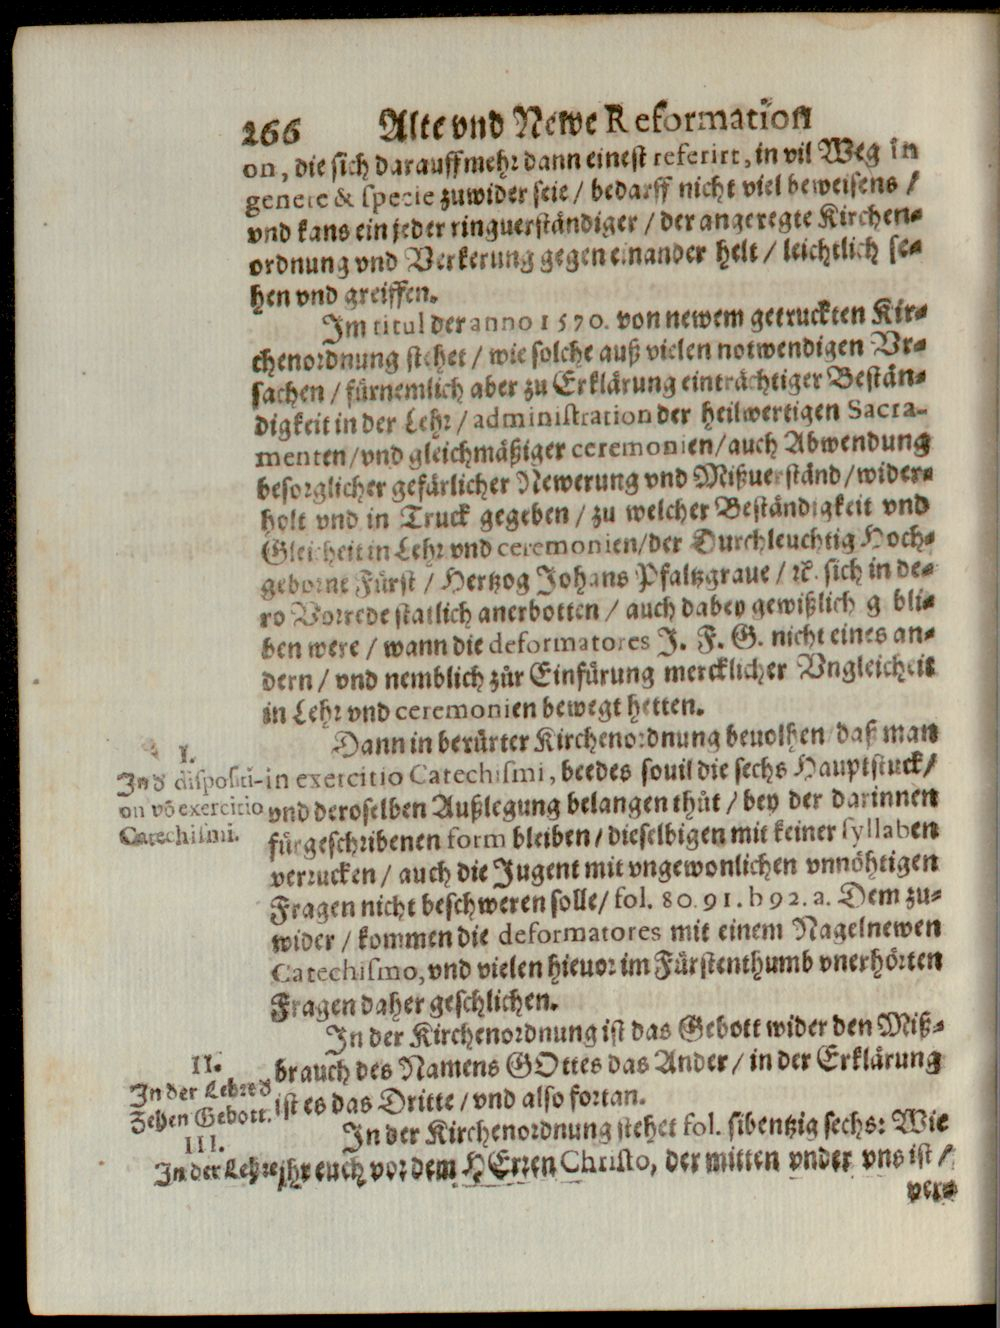 266 Alte vnd Newe Reformation
on, die sich darauff mehr dann einest referirt, in vil Weg in
genere & specie zuwider seie / bedarff nicht viel beweisens /
vnd kans ein jeder ringuerständiger / der angeregte Kirchen-
ordnung vnd Verkerung gegen einander helt / leichtlich se-
hen vnd greiffen.
Im titul der anno 1570. von newem getruckten Kir-
chenordnung stehet / wie solche auß vielen notwendigen Vr-
sachen / fürnemlich aber zu Erklärung einträchtiger Bestän-
digkeit in der Lehr / administration der heilwertigen Sacra-
menten / vnd gleichmäßiger ceremonien / auch Abwendung
besorglicher gefärlicher Newerung vnd Mißuerständ / wider-
holt vnd in Truck gegeben / zu welcher Beständigkeit vnd
Gleicheit in Lehr vnd ceremonien / der Durchleuchtig Hoch-
geborne Fürst / Hertzog Johans Pfaltzgraue / ꝛc. sich in de-
ro Vorrede statlich anerbotten / auch dabey gewißlich g bli-
ben were / wann die deformatores J. F. G. nicht eines an-
dern / vnd nemblich zůr Einfürung mercklicher Vngleicheit
in Lehr vnd ceremonien bewegt hetten.
Dann in berürter Kirchenordnung beuolhen daß man
I.
In d dispositi-
on võ exercitio
Catechismi.
in exercitio Catechismi, beedes souil die sechs Hauptstuck /
vnd deroselben Außlegung belangen thůt / bey der darinnen
fürgeschribenen form bleiben / dieselbigen mit keiner syllaben
verrucken / auch die Jugent mit vngewonlichen vnnöhtigen
Fragen nicht beschweren solle / fol. 80. 91. b 92. a. Dem zu-
wider / kommen die deformatores mit einem Nagelnewen
Catechismo, vnd vielen hieuor im Fürstenthumb vnerhörten
Fragen daher geschlichen.
In der Kirchenordnung ist das Gebott wider den Miß-
II.
In der Lehre d
Zehen Gebott.
brauch des Namens GOttes das Ander / in der Erklärung
ist es das Dritte / vnd also fortan.
In der Kirchenordnung stehet fol. sibentzig sechs: Wie
III.
In der Lehre
jhr euch vor dem HErren Christo, der mitten vnder vns ist /
ver-